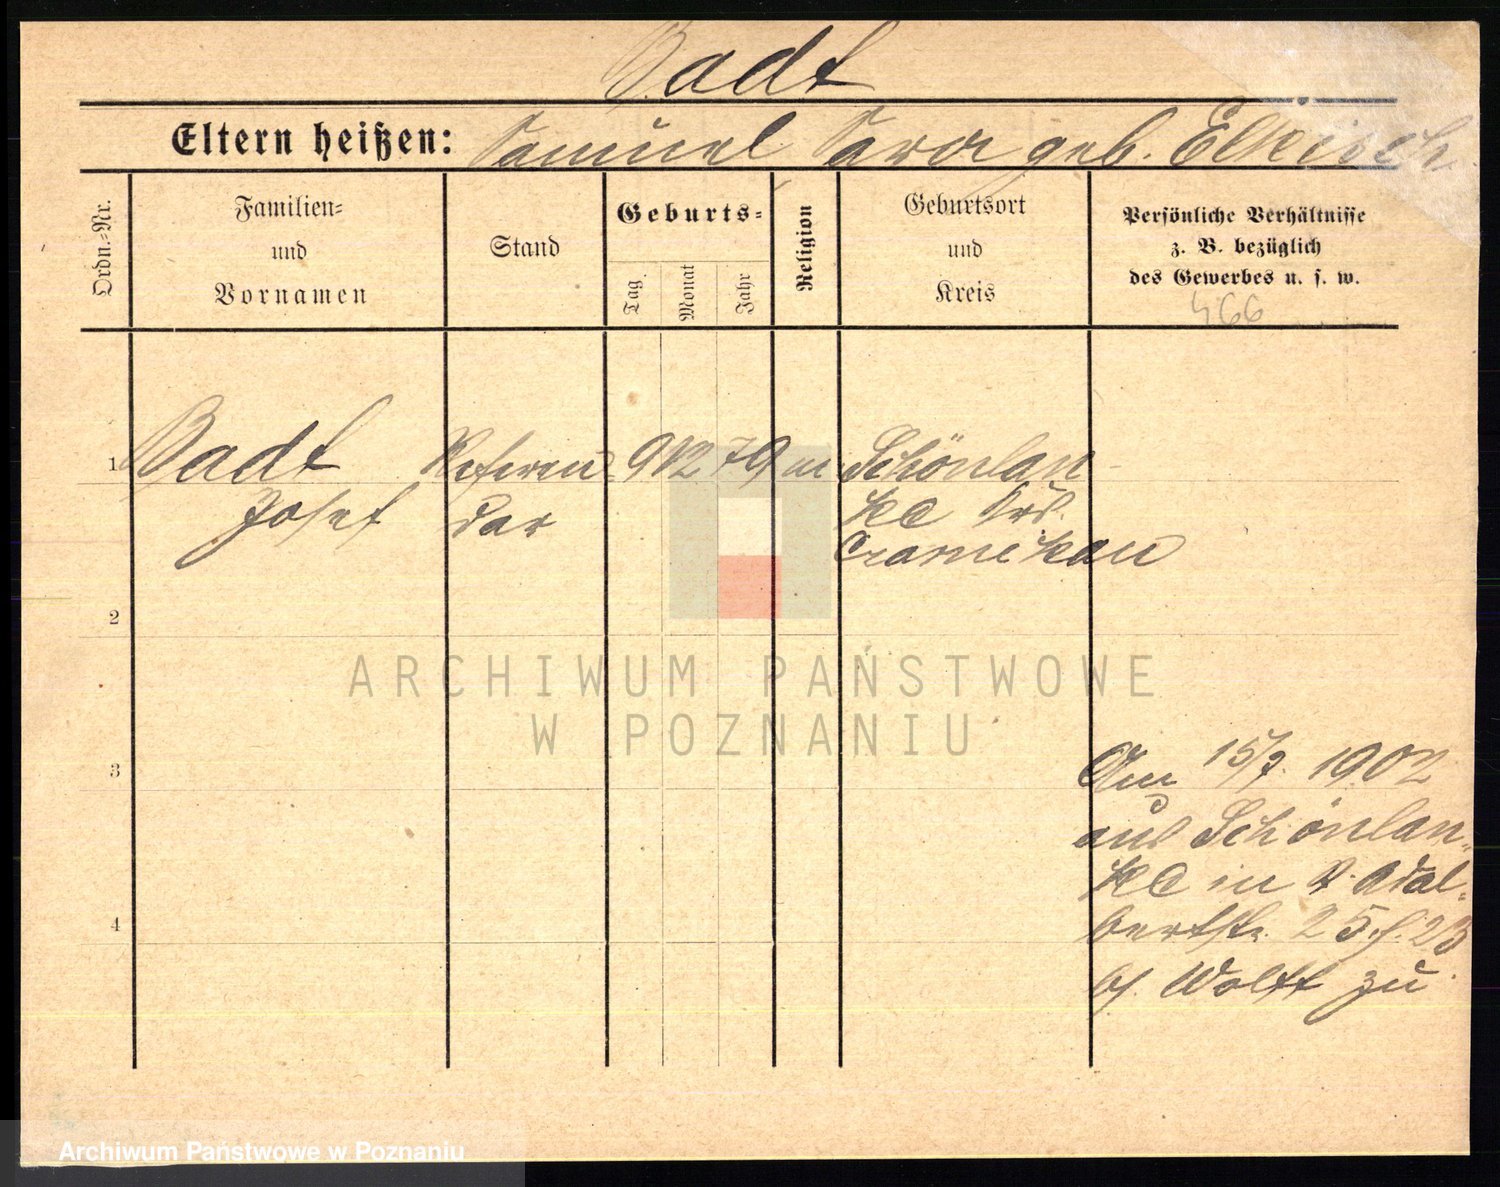 Badt
Eltern heißen: Samuel Sara geb. Elkisch
Ordn.-Nr.
Familien-
und
Vornamen
Stand
Geburts-
Tag
Monat
Jahr
Religion
Geburtsort
und
Kreis
Persönliche Verhältnisse
z. B. bezüglich
des Gewerbes u. s. w.
466
1 Badt Referen 9 12 79 m Schönlan-
Josef dar ke Krs.
Czarnikau
2
ARCHIWUM PAŃSTWOWE
W POZNANIU
3
Am 15/7. 1902
aus Schönlan-
ke in P. Adal-
4
bertstr. 25. f. 23
bj. Wolff zu
Archiwum Państwowe w Poznaniu